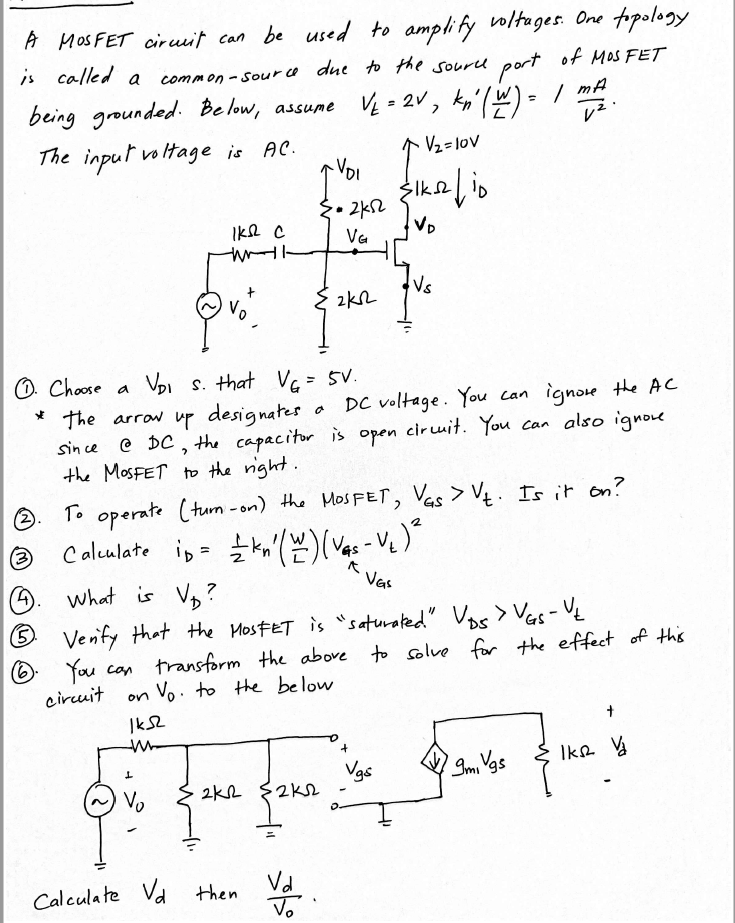 A MOSFET circuit can be used to amplify voltages. One topology
is called a common-source due to the source port of MOSFET
being grounded. Below, assume Vt = 2V, kn'(W/L) = 1 mA/V².
The input voltage is AC.
V2=10V
VD1
1kΩ iD
2kΩ
VD
1kΩ C
VG
VS
Vo + -
2kΩ
①. Choose a VD1 s. that VG = 5V.
* The arrow up designates a DC voltage. You can ignore the AC
since @ DC, the capacitor is open circuit. You can also ignore
the MOSFET to the right.
②. To operate (turn-on) the MOSFET, VGS > Vt. Is it on?
③ Calculate iD = 1/2 kn'(W/L)(VGS - Vt)²
VGS
④. What is VD?
⑤. Verify that the MOSFET is "saturated" VDS > VGS - Vt
⑥. You can transform the above to solve for the effect of this
circuit on Vo. to the below
1kΩ
+ Vo -
2kΩ
2kΩ
+ Vgs -
gm1 Vgs
1kΩ
+ Vd -
Calculate Vd then Vd/Vo.